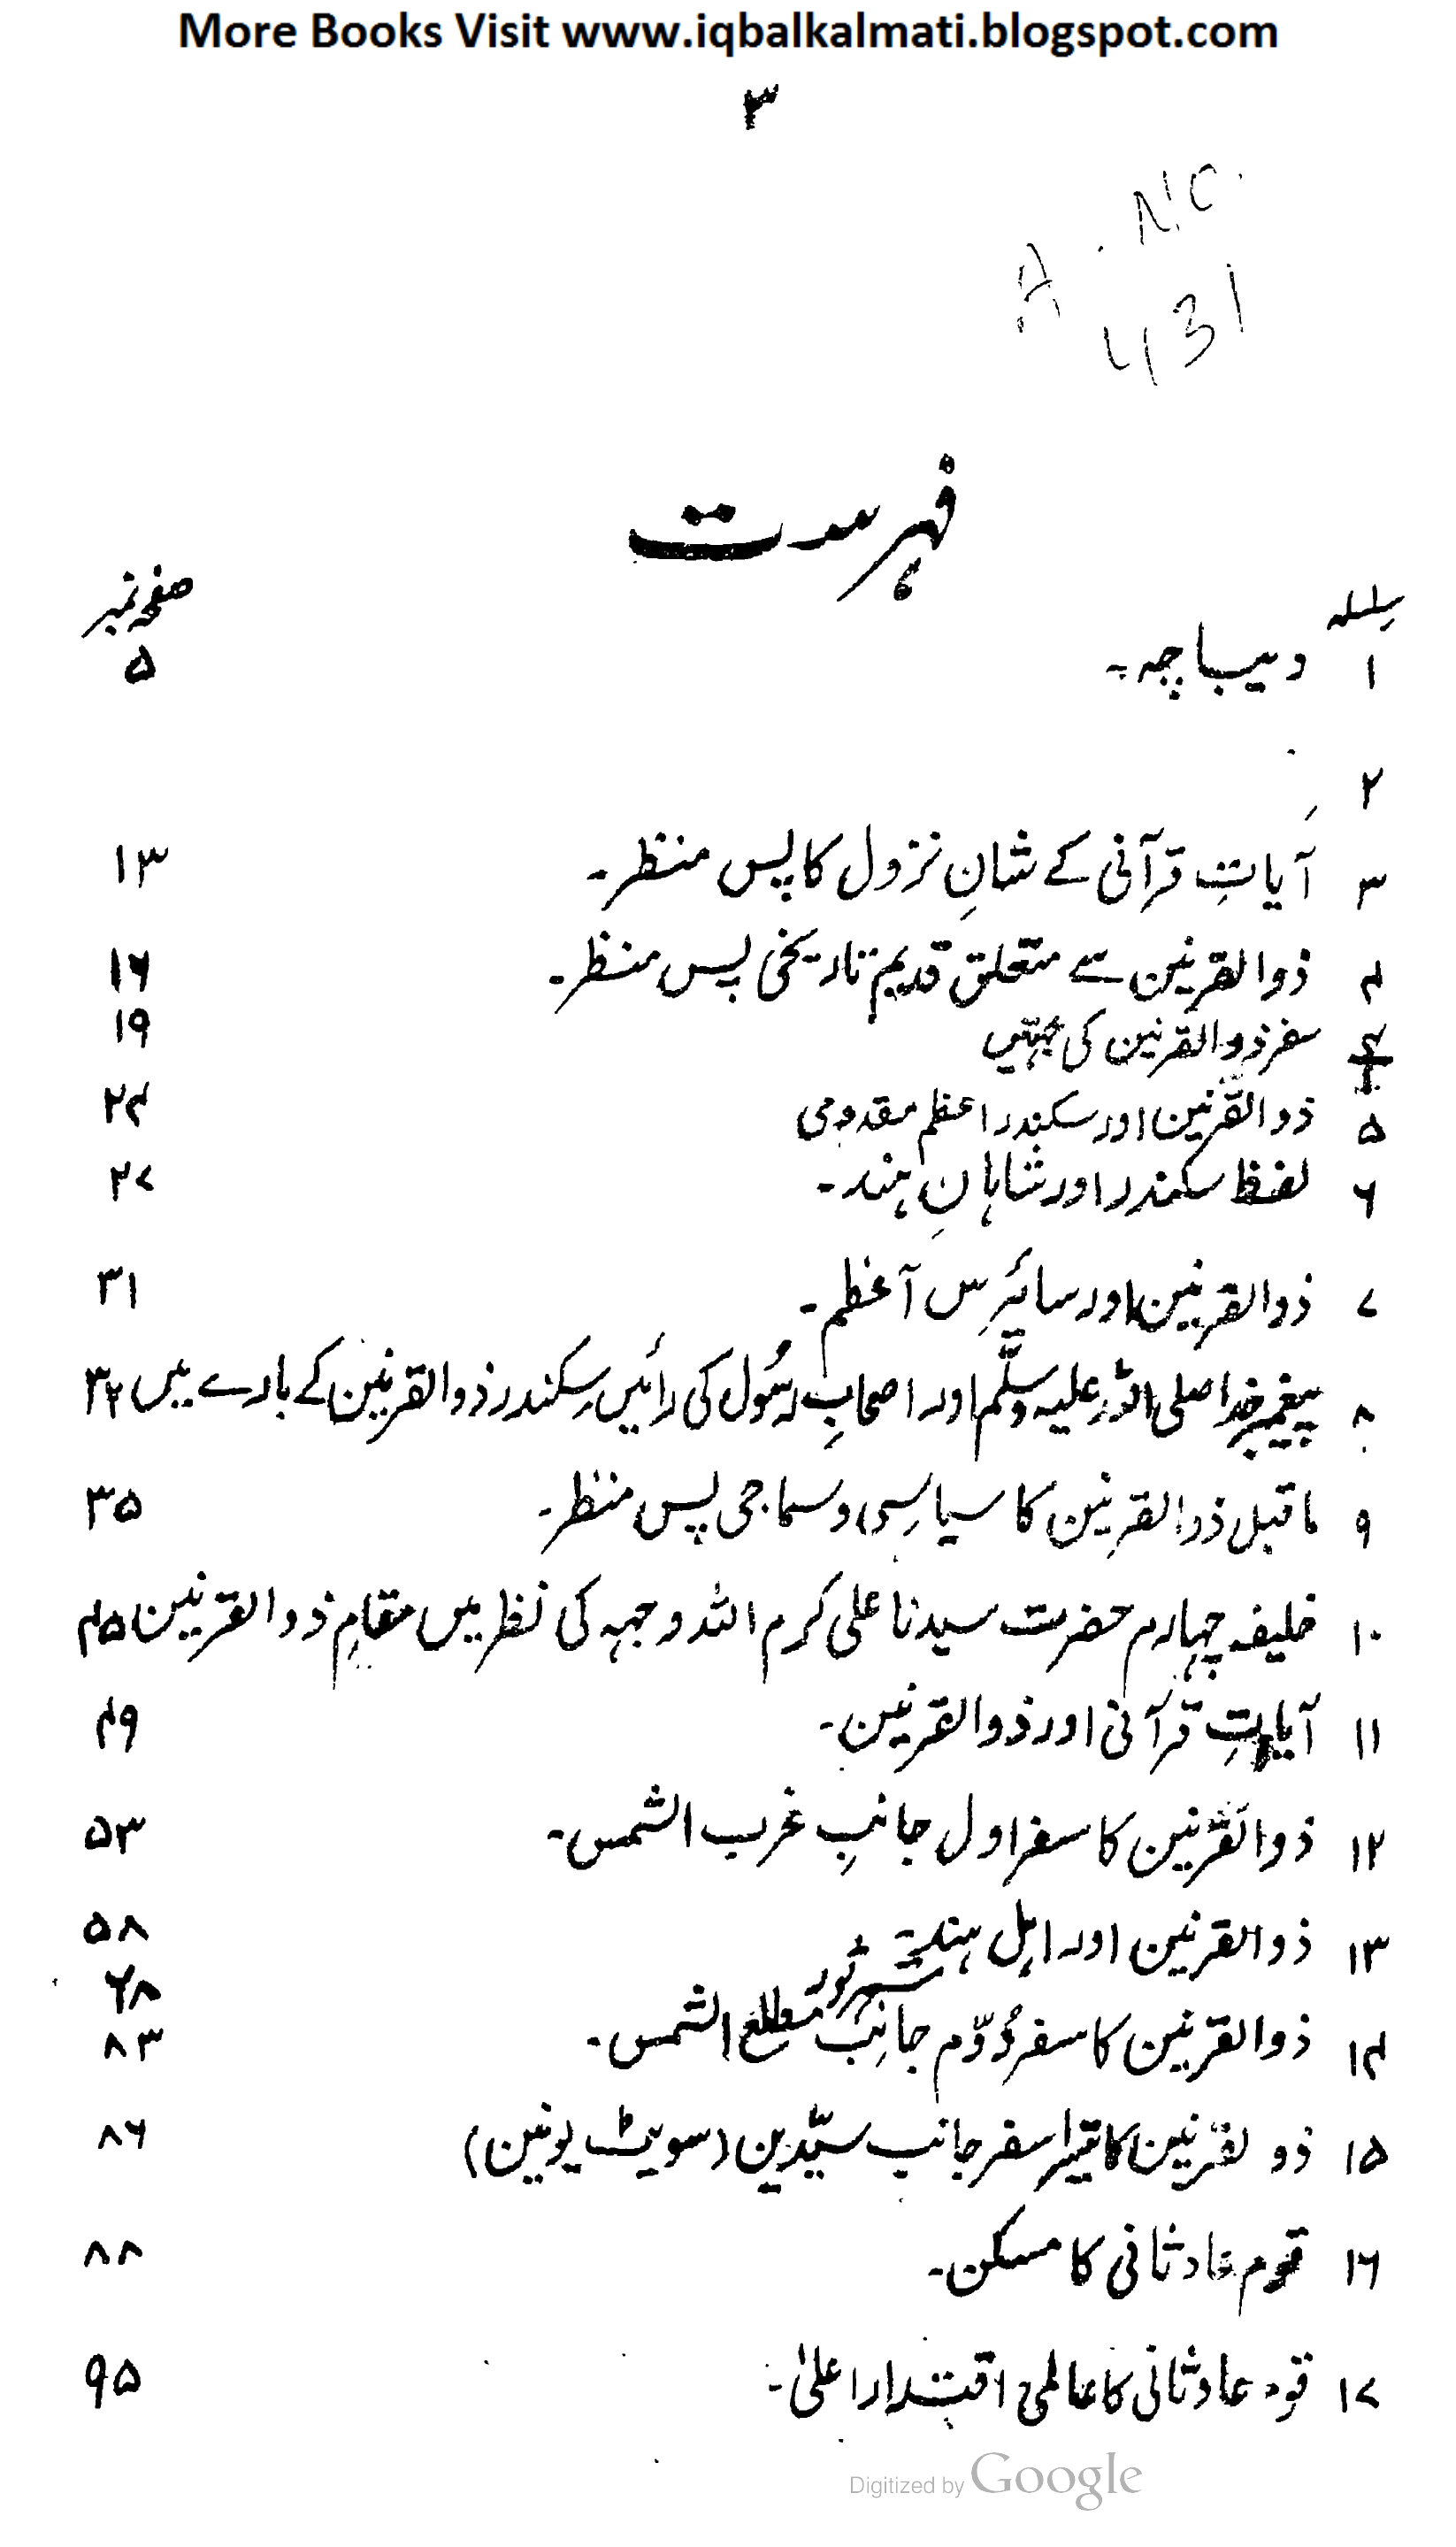 More Books Visit www.iqbalkalmati.blogspot.com
۳
A. No.
431
فہرست
سلسلہ صفحہ نمبر
۱ دیباچہ۔ ۵
۲
۳ آیاتِ قرآنی کے شانِ نزول کا پس منظر۔ ۱۳
۴ ذوالقرنین سے متعلق قدیم تاریخی پس منظر۔ ۱۶
سفر ذوالقرنین کی جہتیں ۱۹
۵ ذوالقرنین اور سکندر اعظم مقدومی ۲۴
۶ لفظ سکندر اور شاہانِ ہند۔ ۲۷
۷ ذوالقرنین اور سائرس آعظم۔ ۳۱
۸ پیغمبرِ خدا صلی اللہ علیہ وسلّم اور اصحابِ رسُول کی رائیں سِکندر ذوالقرنین کے بارے میں ۳۲
۹ ماقبل ذوالقرنین کا سیاسی و سماجی پس منظر۔ ۳۵
۱۰ خلیفہ چہارم حضرت سیدنا علی کرم اللہ وجہہ کی نظر میں مقامِ ذوالقرنین ۴۵
۱۱ آیاتِ قرآنی اور ذوالقرنین۔ ۴۹
۱۲ ذوالقرنین کا سفر اول جانبِ غرب الشمس۔ ۵۳
۱۳ ذوالقرنین اور اہلِ ہند۔ ۵۸
۶۸
۱۴ ذوالقرنین کا سفر دُوّم جانبِ مطلع الشمس۔ ۸۳
۱۵ ذو لقرنین کا تیسرا سفر جانب سدّین (سویٹ یونین) ۸۶
۱۶ قوم عاد ثانی کا مسکن۔ ۸۸
۱۷ قوم عاد ثانی کا عالمی اقتدار اعلیٰ۔ ۹۵
Digitized by Google